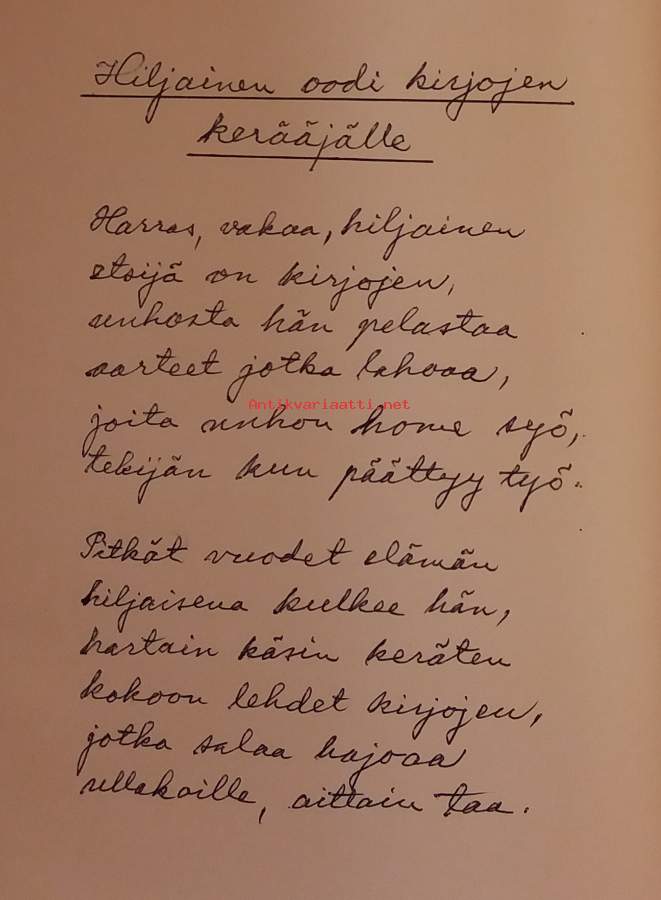 Hiljainen oodi kirjojen
kerääjälle
Harras, vakaa, hiljainen
etsijä on kirjojen,
unhosta hän pelastaa
aarteet jotka lahoaa,
Antikvariaatti.net
joita unhon home syö,
tekijän kun päättyy työ.
Pitkät vuodet elämän
hiljaisena kulkee hän,
hartain käsin keräten
kokoon lehdet kirjojen,
jotka salaa hajoaa
ullakoille, aittain taa.